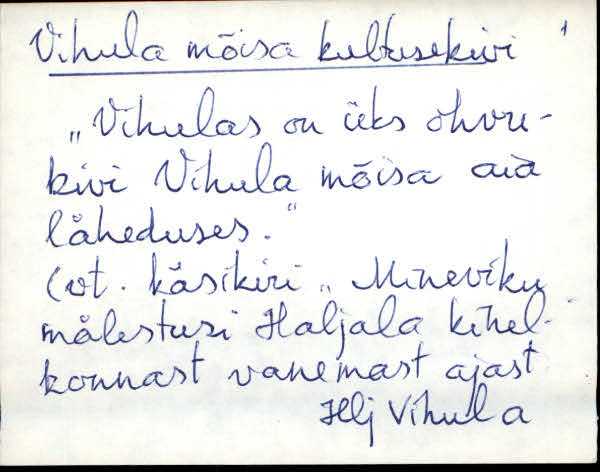 Vihula mõisa kultusekivi 1
„Vihulas on üks ohvri-
kivi Vihula mõisa aia
läheduses."
(vt. käsikiri „Mineviku
mälestusi Haljala kihel-
konnast vanemast ajast
Hlj Vihula